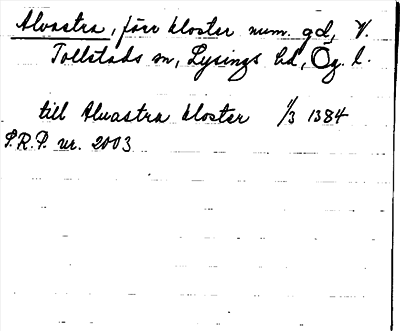 Alvastra, förr kloster num. gd, V.
Tollstads sn, Lysings hd, Ög. l.
till Alvastra kloster 1/3 1384
S.R.P. nr. 2003